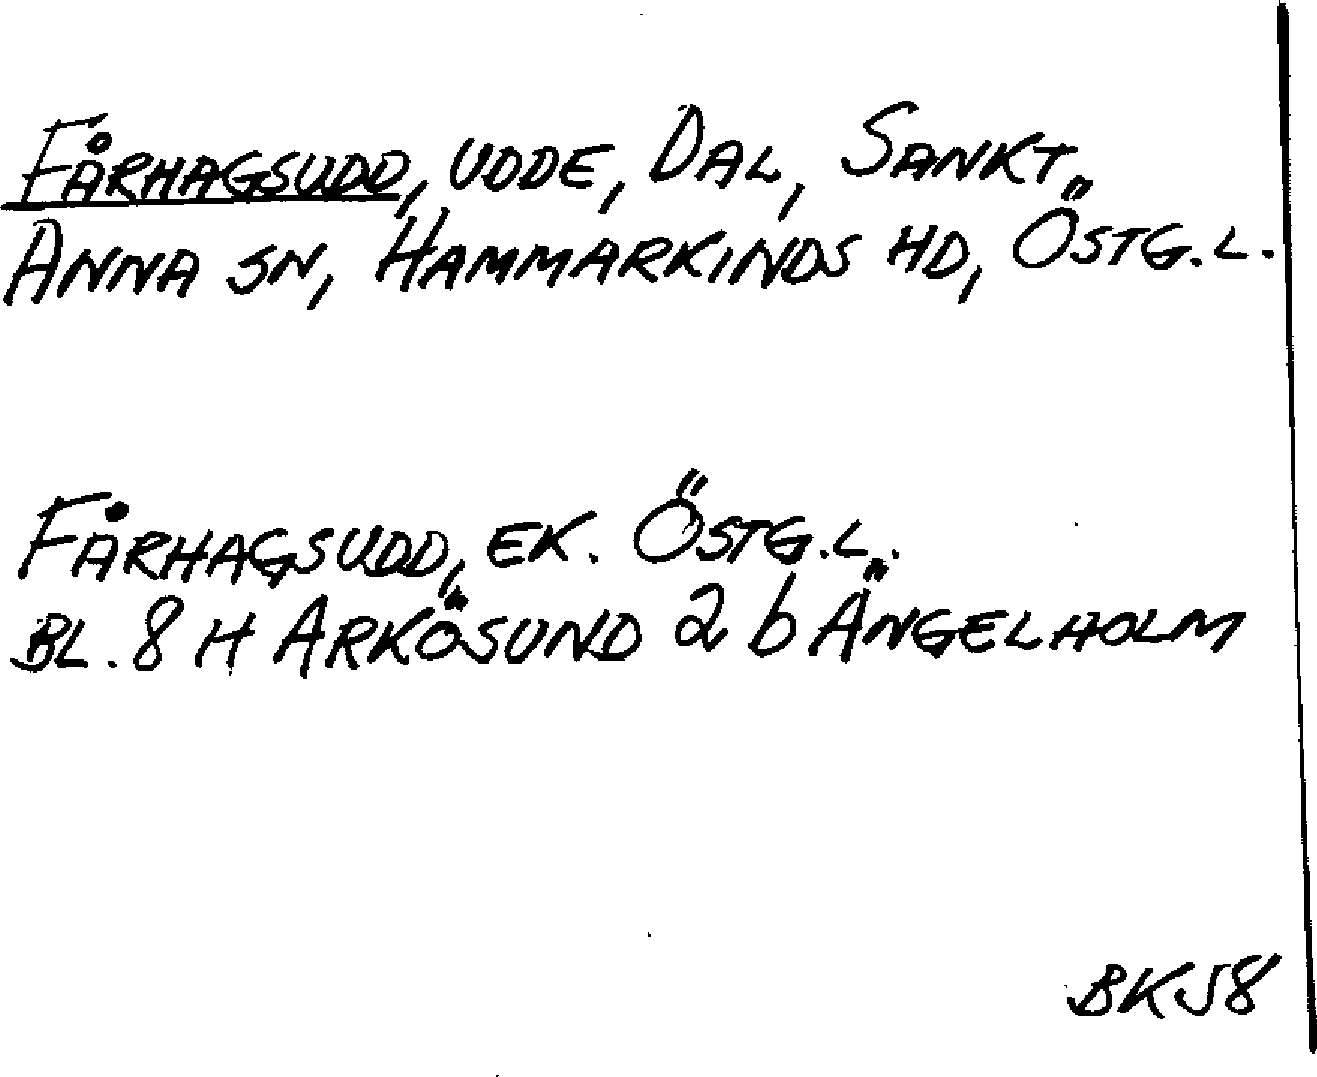 FÅRHAGSUDD, UDDE, DAL, SANKT
ANNA SN, HAMMARKINDS HD, ÖSTG.L.
FÅRHAGSUDD, EK. ÖSTG.L.
BL. 8 H ARKÖSUND 2 b ÄNGELHOLM
BK58